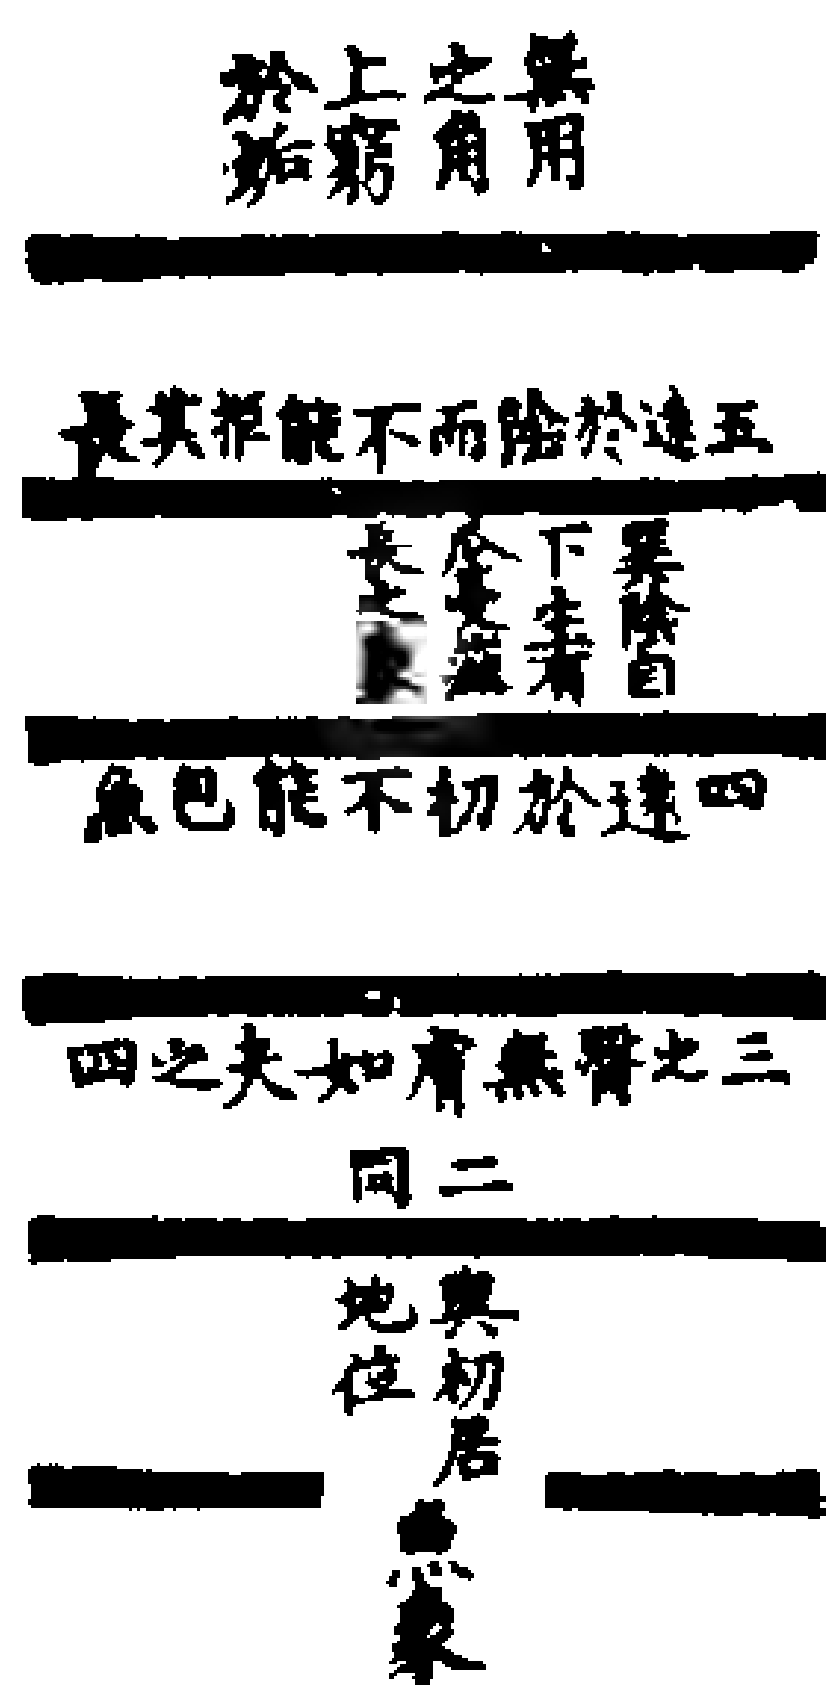 無用
之角
上窮
於姤
五遠於陰而不能拒其長
巽陰自
下生有
瓜蔓滋
長之象
四遠於初不能包魚
三之臀無膚如夬之四
二同
與初居
地位
魚象